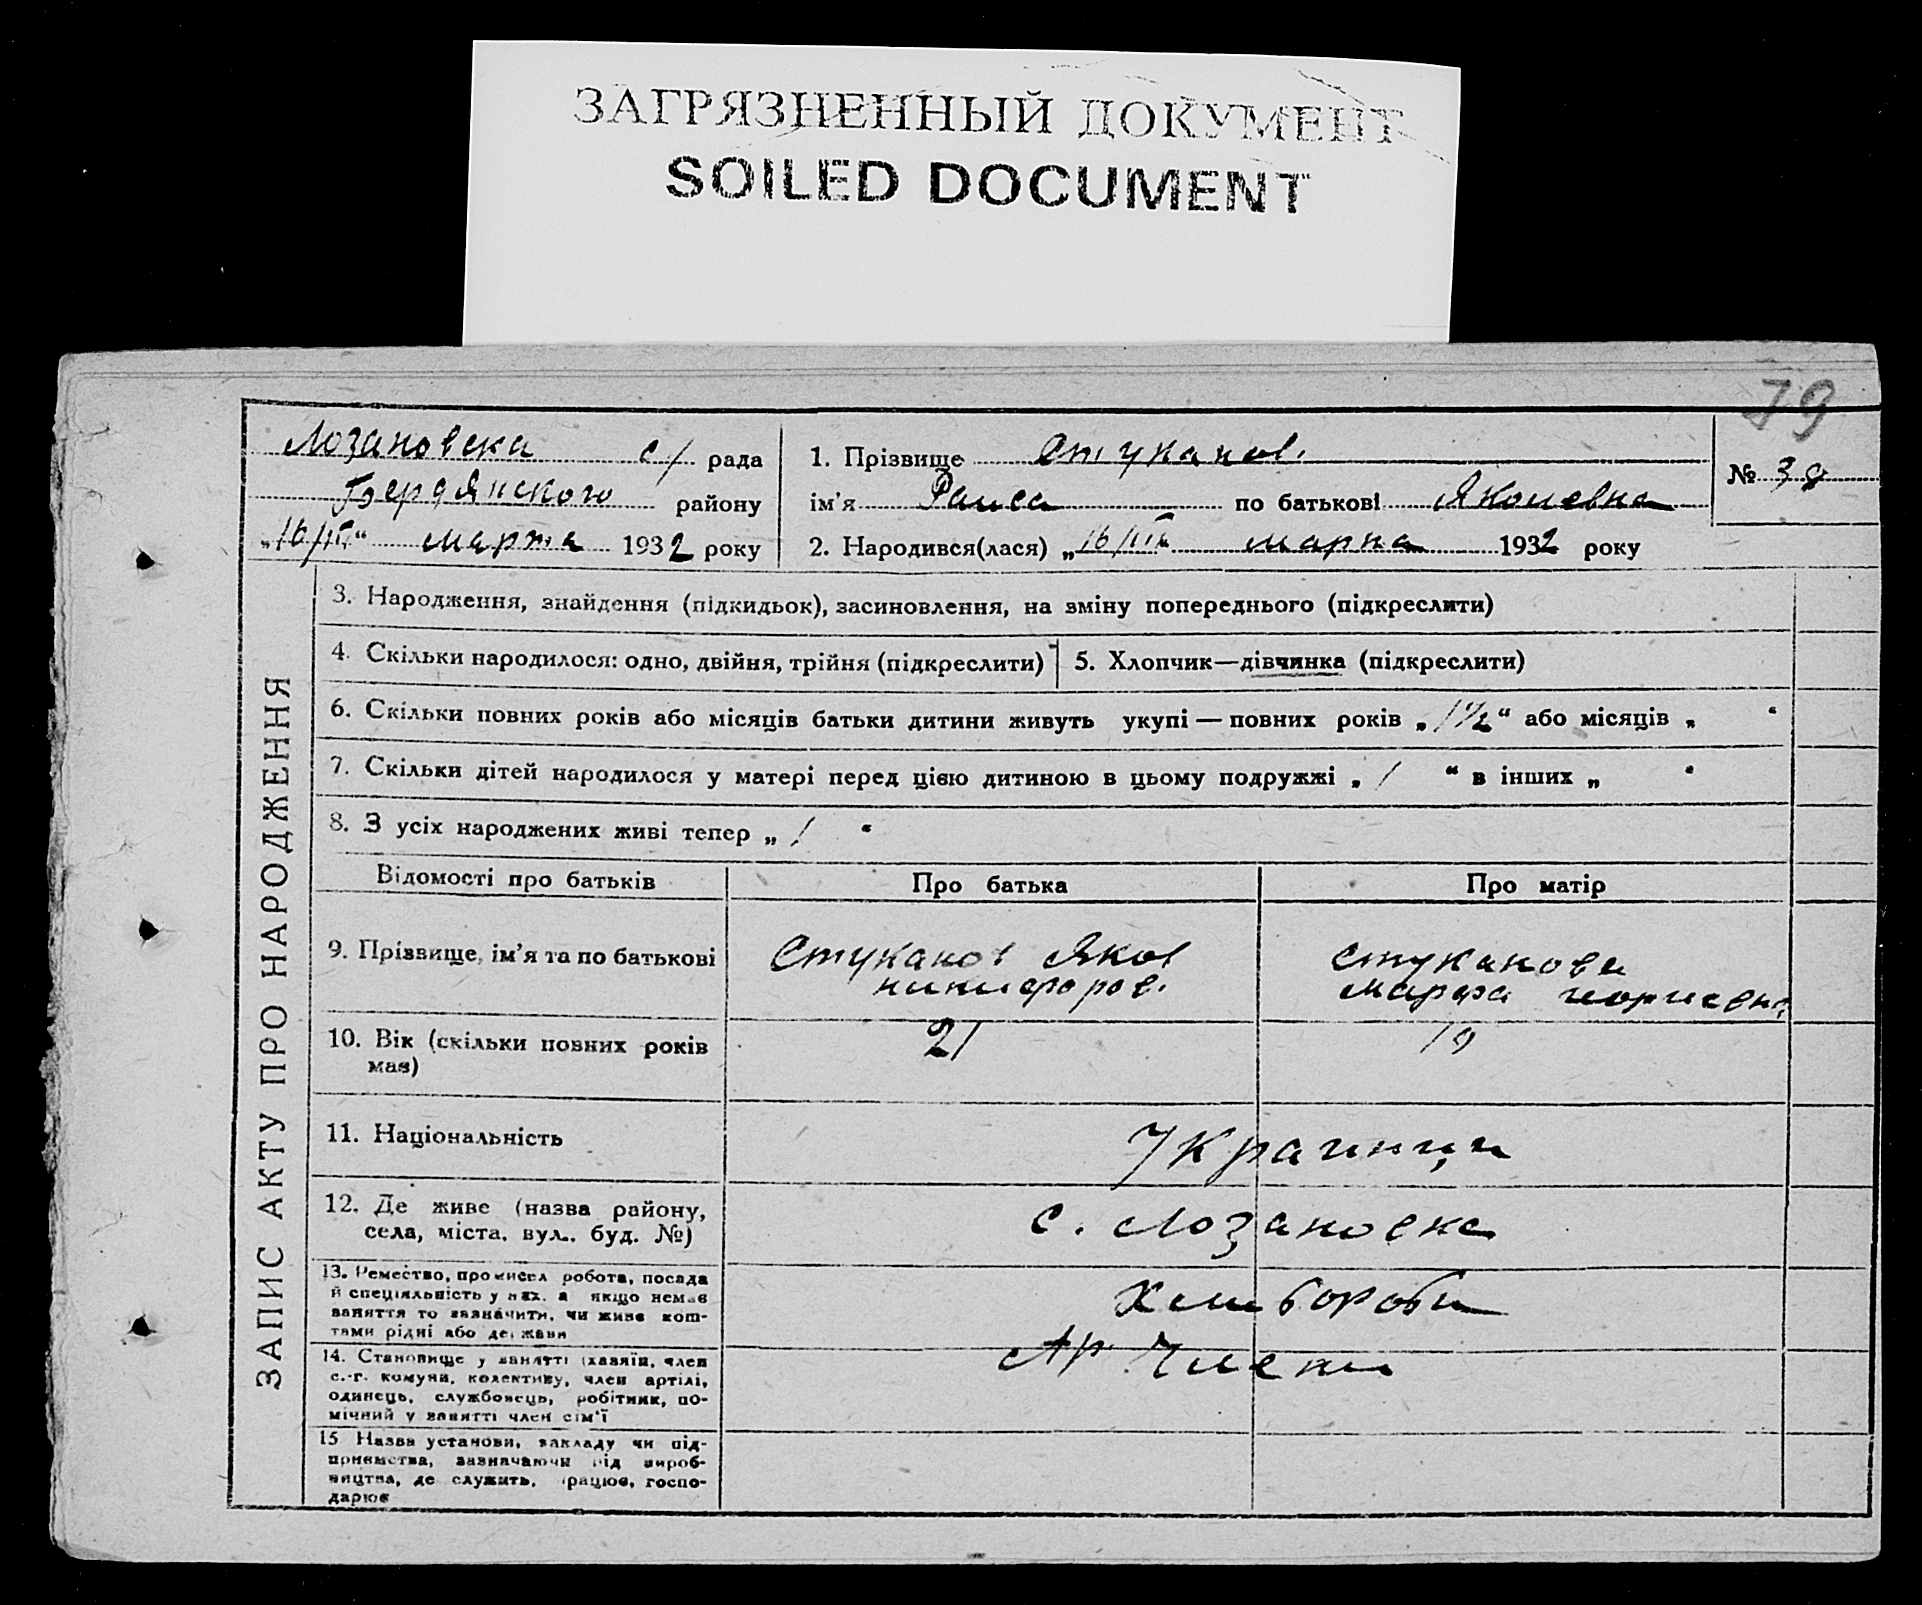 ЗАГРЯЗНЕННЫЙ ДОКУМЕНТ
SOILED DOCUMENT
79
Лозановска с/ рада
Бердянского району
"16/III" марта 1932 року
1. Прізвище Стуканов.
ім'я Раиса по батькові Яковлевна
2. Народився(лася) "16/III" марта 1932 року
№ 38
ЗАПИС АКТУ ПРО НАРОДЖЕННЯ
3. Народження, знайдення (підкидьок), засиновлення, на зміну попереднього (підкреслити)
4. Скільки народилося: одно, двійня, трійня (підкреслити)
5. Хлопчик—дівчинка (підкреслити)
6. Скільки повних років або місяців батьки дитини живуть укупі — повних років „1½“ або місяців „ “
7. Скільки дітей народилося у матері перед цією дитиною в цьому подружжі „1 “ в інших „ “
8. З усіх народжених живі тепер „1 “
Відомості про батьків
Про батька
Про матір
9. Прізвище, ім'я та по батькові
Стуканов Яков
никифоров.
Стуканова
Марфа георгиевна
10. Вік (скільки повних років
має)
21
19
11. Національність
Украинци
12. Де живе (назва району,
села, міста, вул., буд. №)
с. Лозановка
13. Ремество, промисел робота, посада
й спеціяльність у них, а якщо немає
заняття то зазначити, чи живе кош-
тами рідні або держави
Хлибороби
14. Становище у занятті (хазяїн, член
с.-г. комуни, колективу, член артілі,
одинець, службовець, робітник, по-
мічний у занятті член сім'ї
Ар. Члени
15 Назва установи, закладу чи під-
приємства, зазначаючи рід вироб-
ництва, де служить, працює, госпо-
дарює